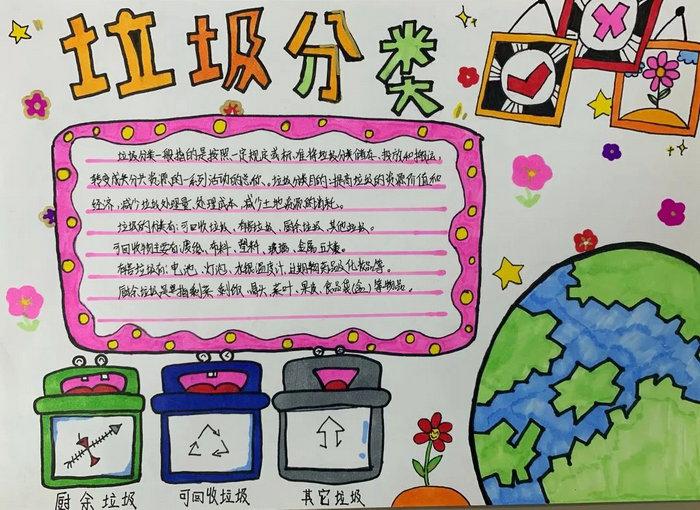 垃圾分类
垃圾分类一般指的是按照一定规定或标准将垃圾分类储存、投放和搬运,
转变成公共资源的一系列活动的总称。垃圾分类目的:提高垃圾的资源价值和
经济,减少垃圾处理量、处理成本,减少土地资源的消耗。
垃圾的种类有:可回收垃圾、有害垃圾、厨余垃圾、其他垃圾。
可回收物主要有:废纸、布料、塑料、玻璃、金属五大类。
有害垃圾有:电池、灯泡、水银温度计、过期物药品及化妆品等。
厨余垃圾是单指剩菜 剩饭、骨头、菜叶、果皮、食品袋(盒)等物品。
厨余垃圾
可回收垃圾
其它垃圾